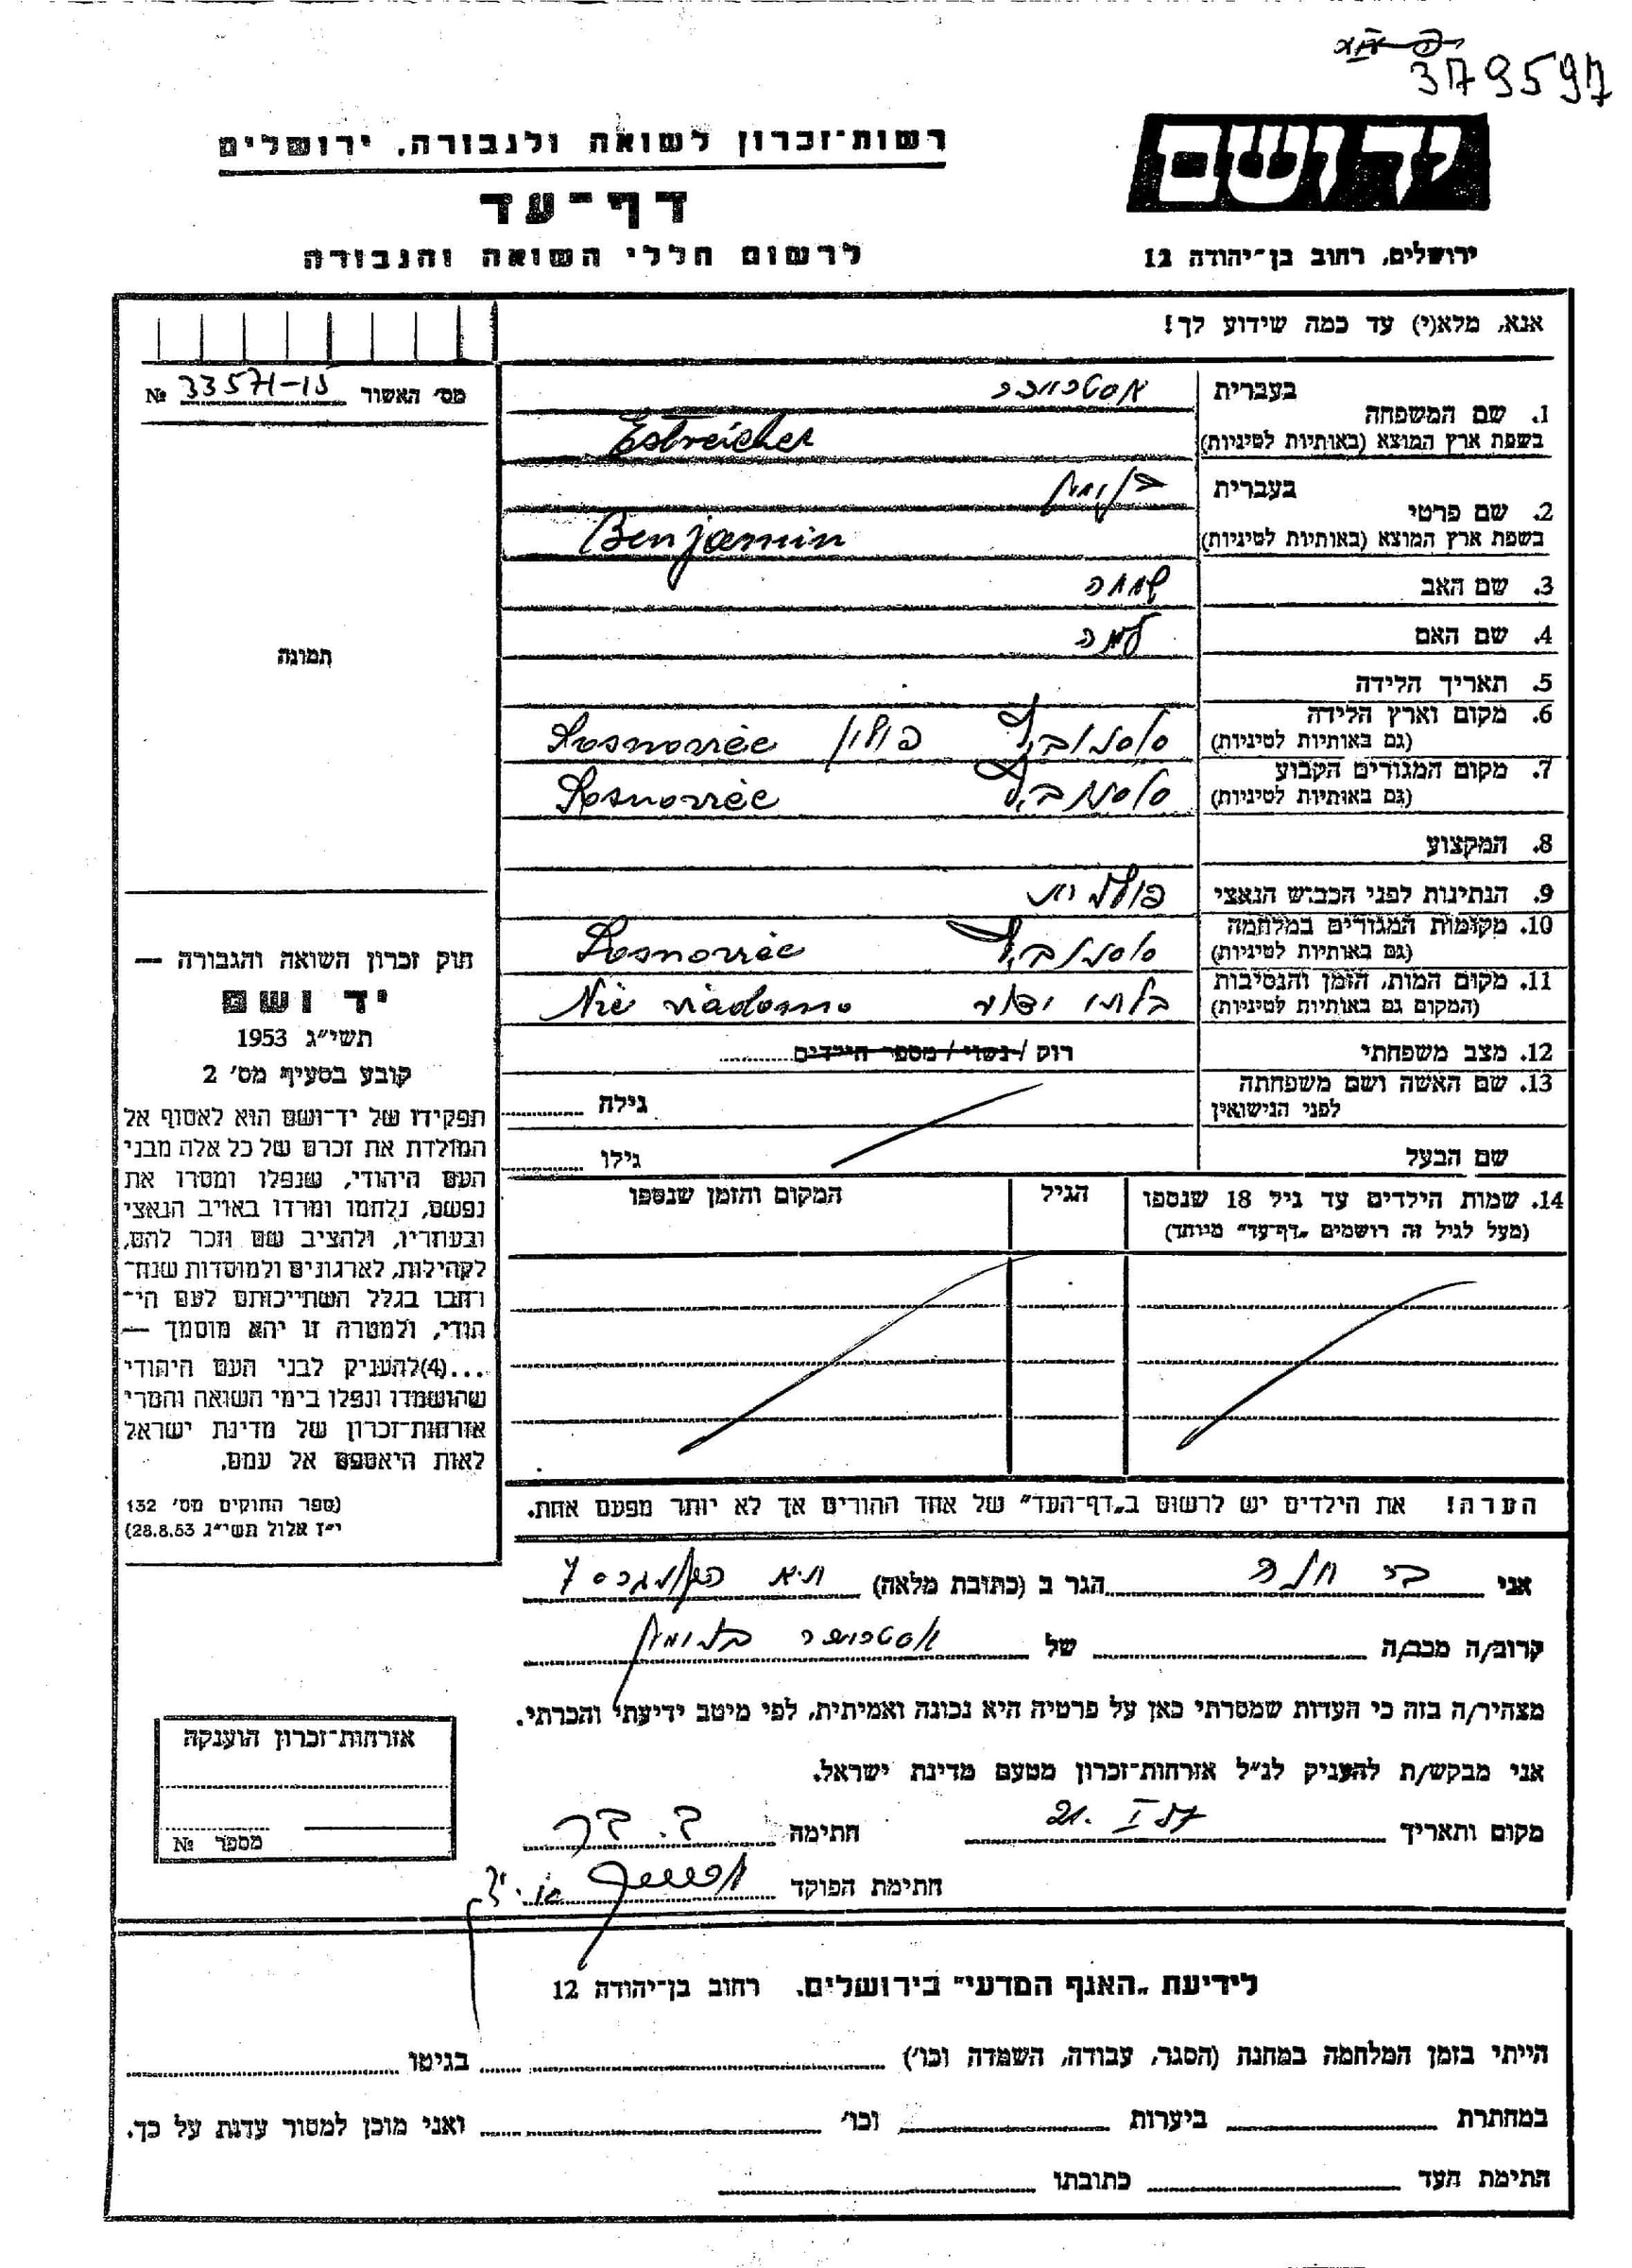 379597
ידושם
רשות־זכרון לשואה ולגבורה, ירושלים
דף־עד
לרשום חללי השואה והגבורה
ירושלים, רחוב בן־יהודה 12
אנא, מלא(י) עד כמה שידוע לך!
מס׳ האשור 33571-15 №
תמונה
1. שם המשפחה
בעברית
בשפת ארץ המוצא (באותיות לטיניות) Estreicher
2. שם פרטי
בעברית בנימין
בשפת ארץ המוצא (באותיות לטיניות) Benjamin
3. שם האב שמחה
4. שם האם
5. תאריך הלידה
6. מקום וארץ הלידה
(גם באותיות לטיניות) סוסנוביץ פולין Sosnowiec
7. מקום המגורים הקבוע
(גם באותיות לטיניות) סוסנוביץ Sosnowiec
8. המקצוע
9. הנתינות לפני הכבוש הנאצי פולנית
10. מקומות המגורים במלחמה
(גם באותיות לטיניות) סוסנוביץ Sosnowiec
11. מקום המות, הזמן והנסיבות
(המקום גם באותיות לטיניות) בלתי ידוע Nie wiadomo
12. מצב משפחתי רווק / נשוי / מספר הילדים
13. שם האשה ושם משפחתה
לפני הנישואין גילה
שם הבעל גילו
14. שמות הילדים עד גיל 18 שנספו הגיל המקום והזמן שנספו
(מעל לגיל זה רושמים „דף־עד״ מיוחד)
הערה! את הילדים יש לרשום ב„דף־העד״ של אחד ההורים אך לא יותר מפעם אחת.
חוק זכרון השואה והגבורה —
יד ושם
תשי״ג 1953
קובע בסעיף מס׳ 2
תפקידו של יד־ושם הוא לאסוף אל
המולדת את זכרם של כל אלה מבני
העם היהודי, שנפלו ומסרו את
נפשם, נלחמו ומרדו באויב הנאצי
ובעוזריו, ולהציב שם וזכר להם,
לקהילות, לארגונים ולמוסדות שנח־
רחבו בגלל השתייכותם לעם הי־
הודי, ולמטרה זו יהא מוסמך —
...(4)להעניק לבני העם היהודי
שהושמדו ונפלו בימי השואה והמרי
אזרחות־זכרון של מדינת ישראל
לאות היאספם אל עמם.
(ספר החוקים מס׳ 132
י״ז אלול תשי״ג 28.8.53)
אני הגר ב (כתובת מלאה)
קרוב/ה מכב/ה של בנימין
מצהיר/ה בזה כי העדות שמסרתי כאן על פרטיה היא נכונה ואמיתית, לפי מיטב ידיעתי והכרתי.
אני מבקש/ת להעניק לנ״ל אזרחות־זכרון מטעם מדינת ישראל.
מקום ותאריך 21. I חתימה
חתימת הפוקד
אזרחות־זכרון הוענקה
מספר №
לידיעת „האגף המדעי״ בירושלים. רחוב בן־יהודה 12
הייתי בזמן המלחמה במחנה (הסגר, עבודה, השמדה וכו׳) בגיטו
במחתרת ביערות וכו׳ ואני מוכן למסור עדות על כך.
חתימת העד כתובתו